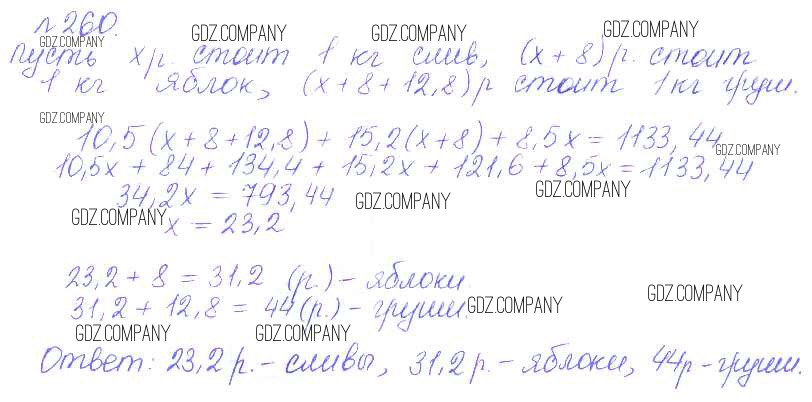 №260.
GDZ.COMPANY GDZ.COMPANY GDZ.COMPANY
GDZ.COMPANY
Пусть х р. стоит 1 кг слив, (х + 8) р. стоит
1 кг яблок, (х + 8 + 12,8) р стоит 1 кг груш.
GDZ.COMPANY
10,5(х + 8 + 12,8) + 15,2(х + 8) + 8,5х = 1133,44
GDZ.COMPANY
10,5х + 84 + 134,4 + 15,2х + 121,6 + 8,5х = 1133,44
34,2х = 793,44
GDZ.COMPANY GDZ.COMPANY
GDZ.COMPANY
х = 23,2
23,2 + 8 = 31,2 (р.) - яблоки.
GDZ.COMPANY
31,2 + 12,8 = 44 (р.) - груши.
GDZ.COMPANY
GDZ.COMPANY GDZ.COMPANY
Ответ: 23,2 р. - сливы, 31,2 р. - яблоки, 44р - груши.